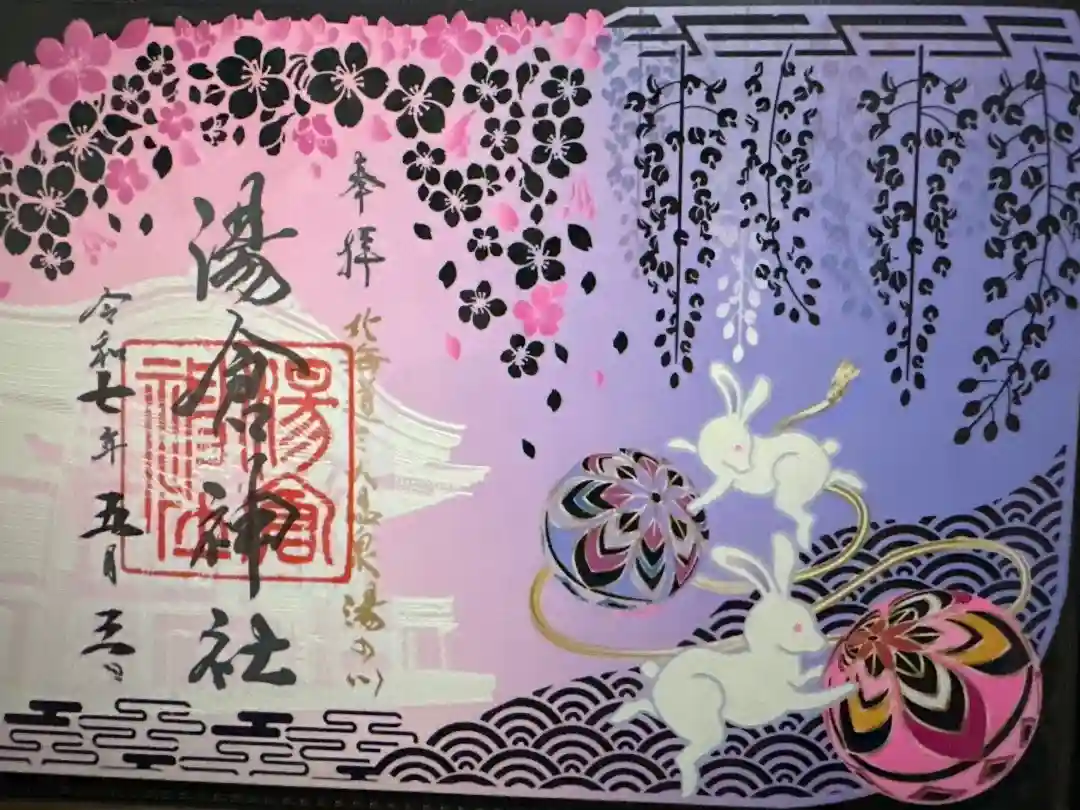 奉拝
北海道 泉湯の川
湯倉神社
湯倉神社
令和七年五月三日